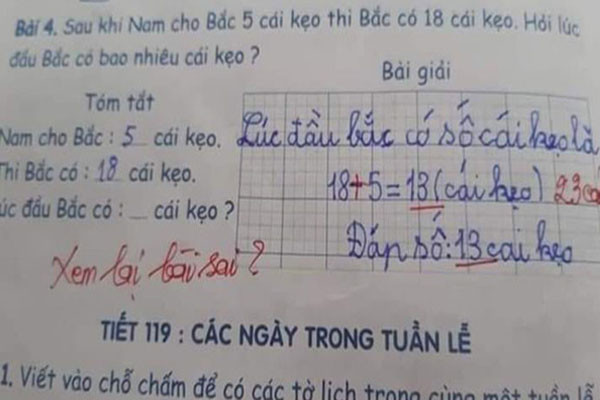 Bài 4. Sau khi Nam cho Bắc 5 cái kẹo thì Bắc có 18 cái kẹo. Hỏi lúc
đầu Bắc có bao nhiêu cái kẹo ?
Bài giải
Tóm tắt
Nam cho Bắc : 5 cái kẹo.
Thì Bắc có : 18 cái kẹo.
úc đầu Bắc có : __ cái kẹo ?
Lúc đầu bắc có số cái kẹo là
18+5=13 (cái kẹo) 23 cá
Đáp số: 13 cái kẹo
Xem lại bài sai ?
TIẾT 119 : CÁC NGÀY TRONG TUẦN LỄ
1. Viết vào chỗ chấm để có các tờ lịch trong cùng một tuần lễ